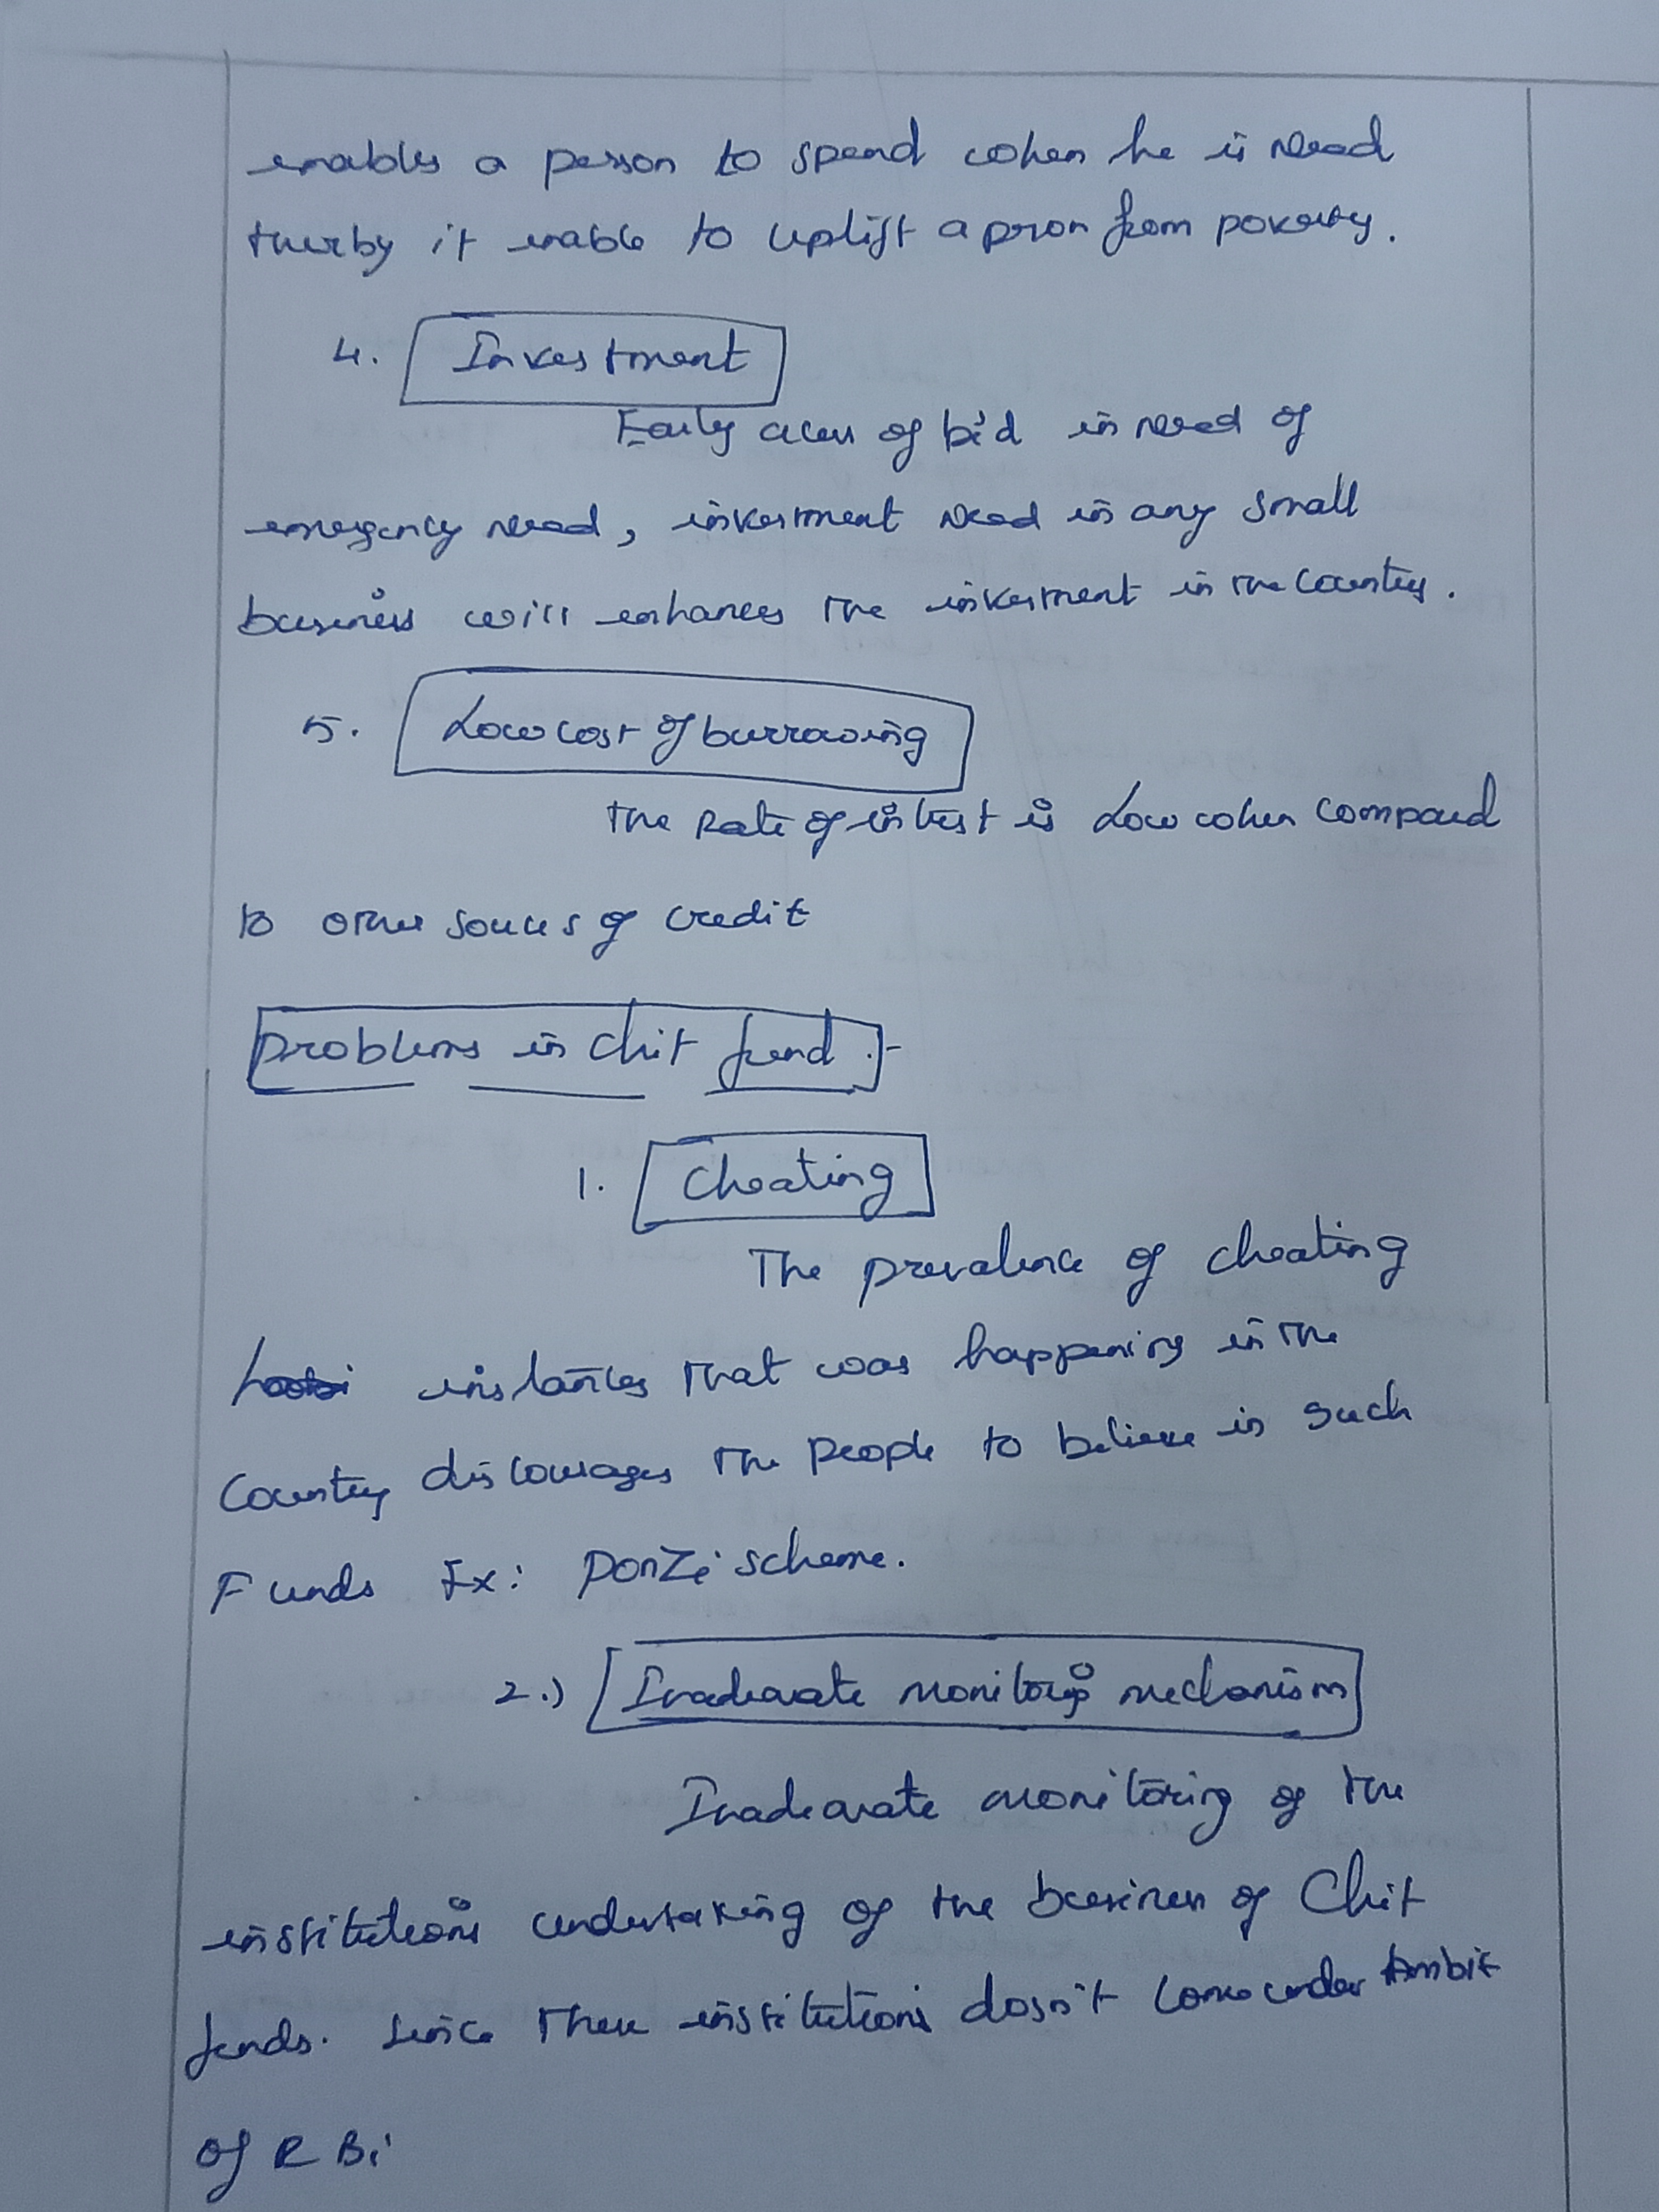 enables a person to spend when he is need
therby it enable to uplift a prson from poverty.
4. Investment
Early acess of bid in need of
emergency need, investment need in any small
business will enhances the investment in the country.
5. Low cost of burrowing
The Rate of intrest is Low when compared
to other souces of credit
problems in chit fund :-
1. Cheating
The prevalence of cheating
instances that was happening in the
Country discourages the people to believe in such
Funds Ex: Ponzi scheme.
2.) Inadeavate monitorig mechanism
Inadeavate monitoring of the
institutions undertaking of the business of Chit
funds. Since these institutions dosn't come under Ambit
of RBi